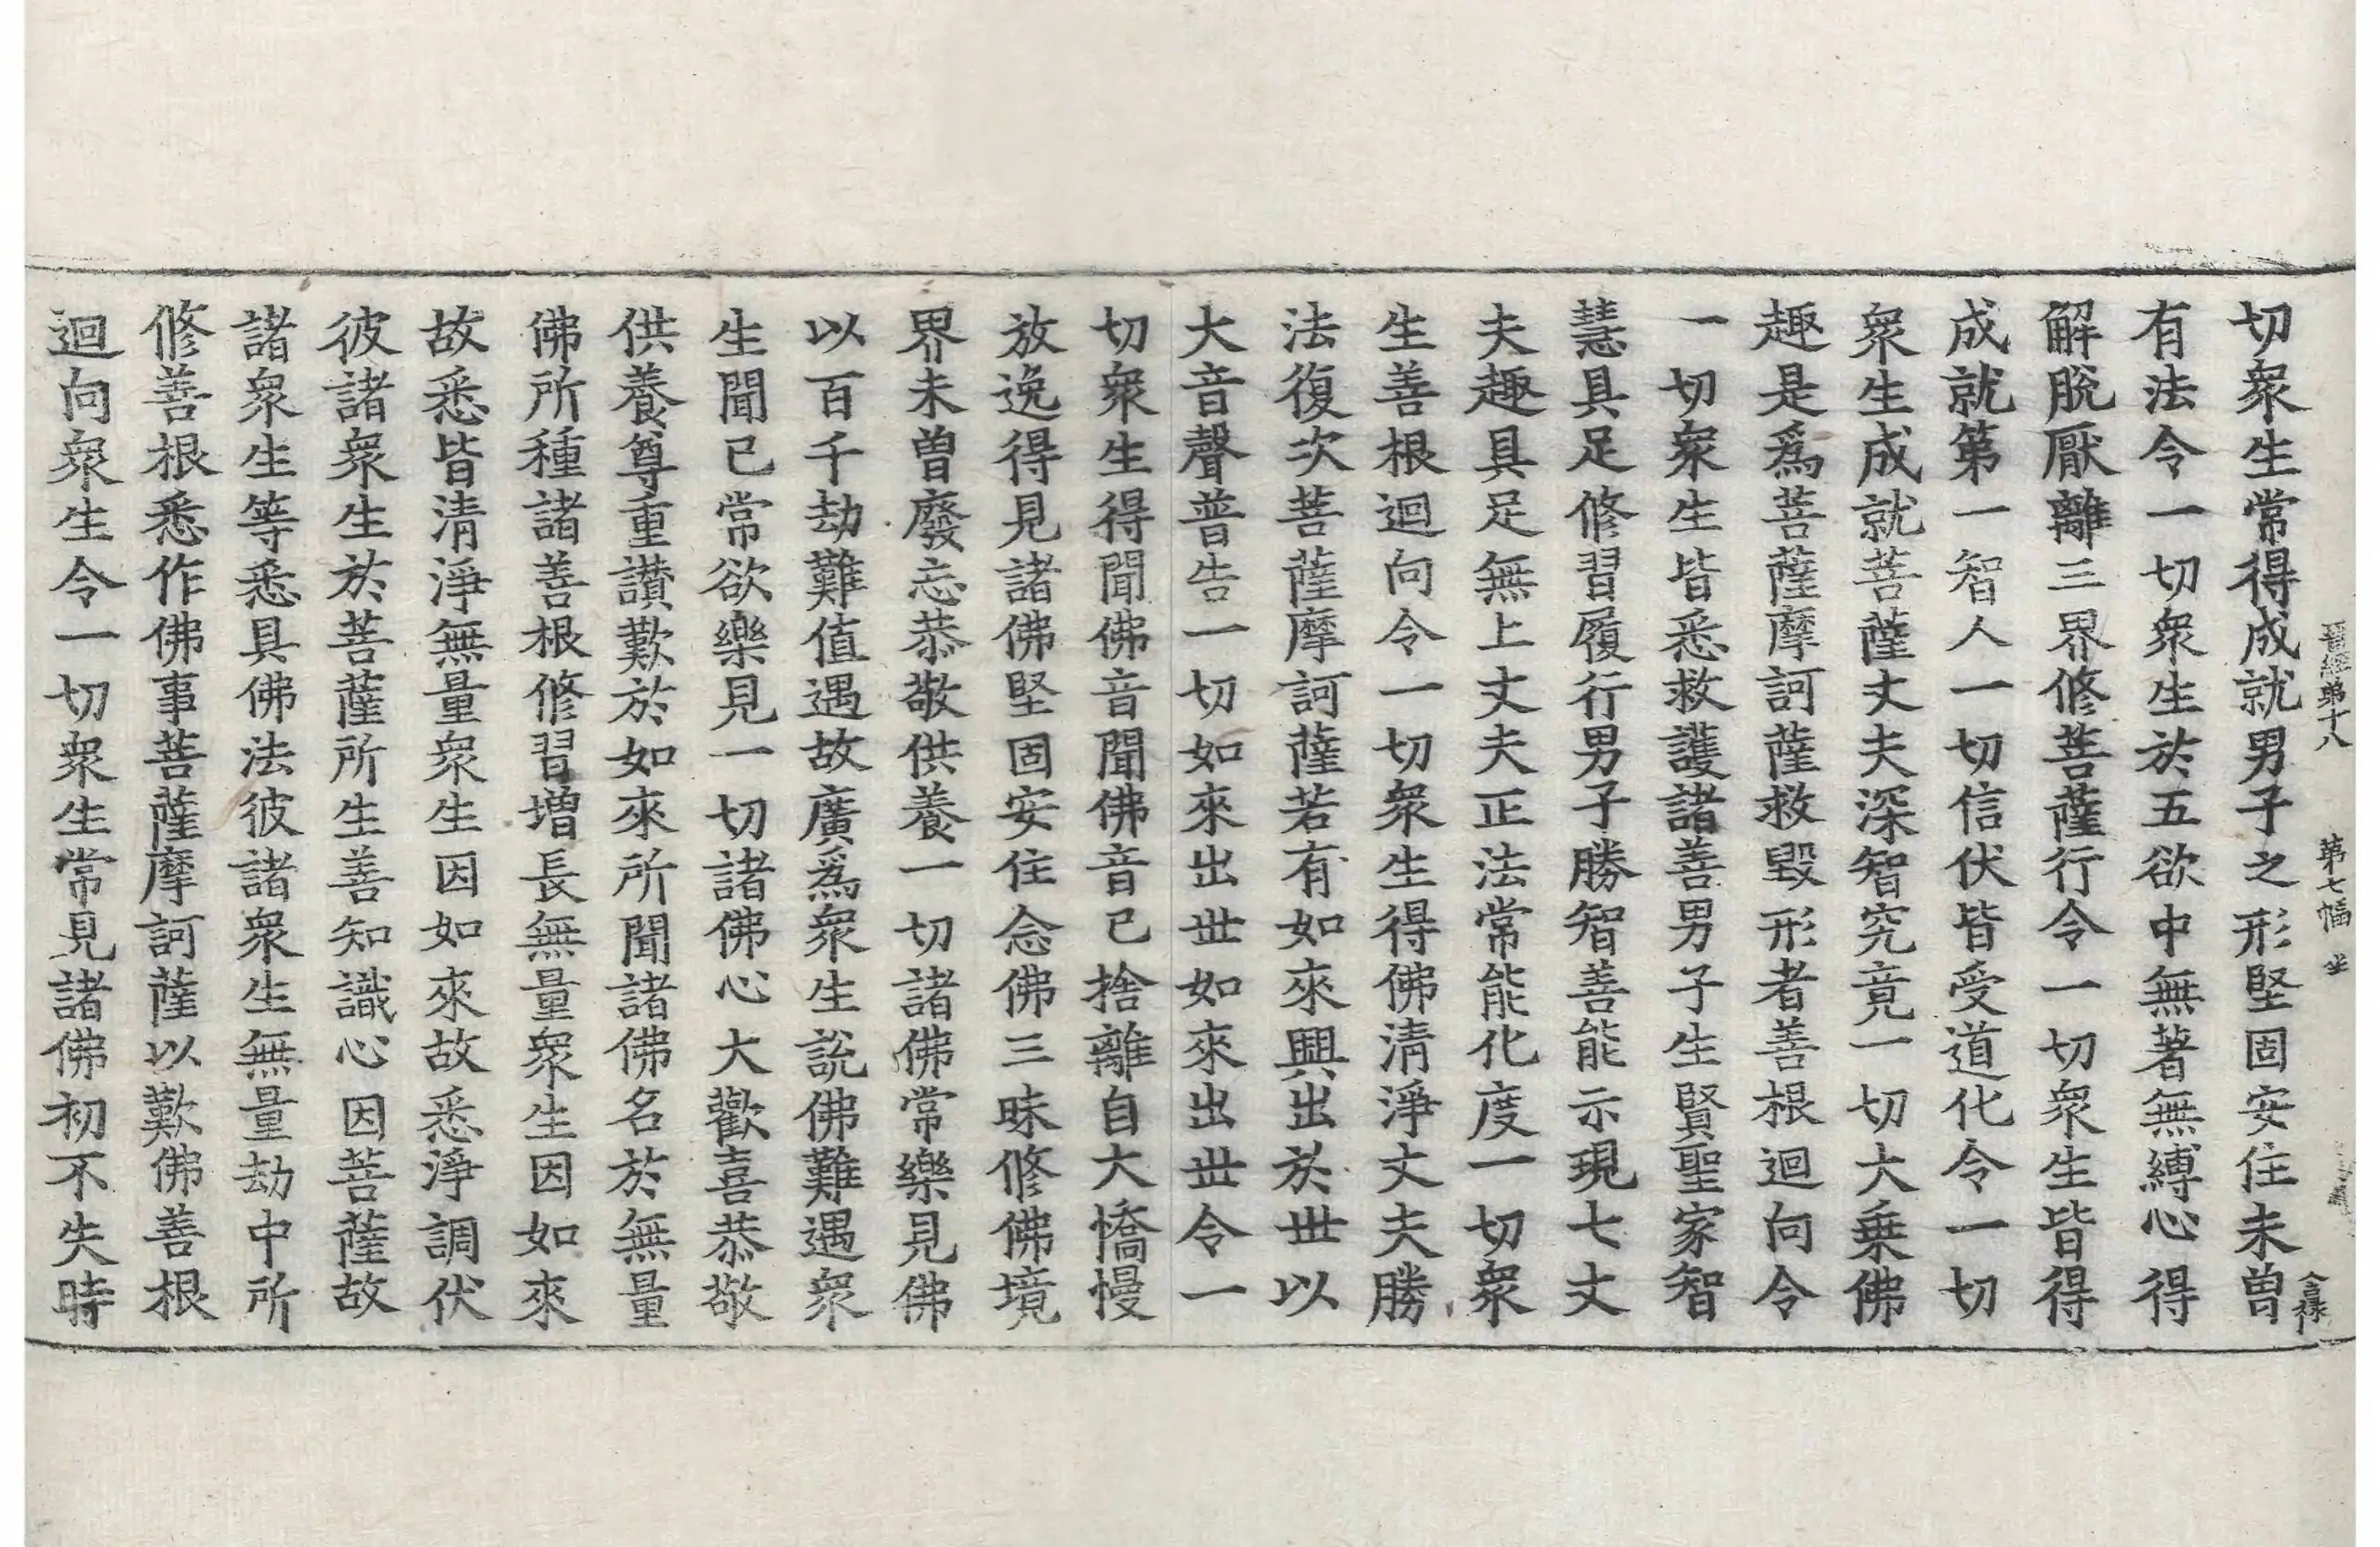 晉經第十八　第七幅　坐
切衆生常得成就男子之形堅固安住未曾
有法令一切衆生於五欲中無著無縛心得
解脫厭離三界修菩薩行令一切衆生皆得
成就第一智人一切信伏皆受道化令一切
衆生成就菩薩丈夫深智究竟一切大乗佛
趣是爲菩薩摩訶薩救毀形者善根迴向令
一切衆生皆悉救護諸善男子生賢聖家智
慧具足修習履行男子勝智善能示現七丈
夫趣具足無上丈夫正法常能化度一切衆
生善根迴向令一切衆生得佛清淨丈夫勝
法復次菩薩摩訶薩若有如來興出於世以
大音聲普告一切如來出世如來出世令一
切衆生得聞佛音聞佛音已捨離自大憍慢
放逸得見諸佛堅固安住念佛三昧修佛境
界未曽廢忘恭敬供養一切諸佛常樂見佛
以百千劫難值遇故廣爲衆生說佛難遇衆
生聞已常欲樂見一切諸佛心大歡喜恭敬
供養尊重讃歎於如來所聞諸佛名於無量
佛所種諸善根修習增長無量衆生因如來
故悉皆清淨無量衆生因如來故悉淨調伏
彼諸衆生於菩薩所生善知識心因菩薩故
諸衆生等悉具佛法彼諸衆生無量劫中所
修善根悉作佛事菩薩摩訶薩以歎佛善根
迴向衆生令一切衆生常見諸佛初不失時